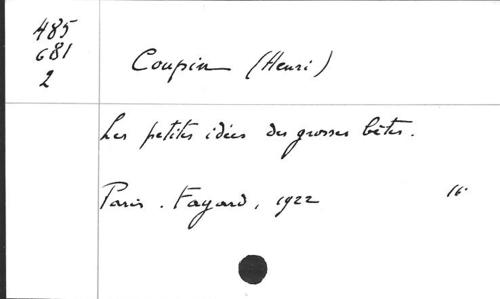 485
681
2
Coupin (Henri)
Les petites idées des grosses bêtes.
Paris. Fayard, 1922
16.